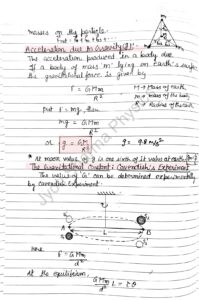 masses on the particle.
Acceleration due to Gravity (g):
The acceleration produced in a body due
If a body of mass 'm' lying on earth's surface
the gravitational force is given by
F = GMm / R²
M → Mass of Earth
m → Mass of the body
R → Radius of the earth
put F = mg, then
mg = GMm / R²
or g = GM / R²
g = 9.8 m/s²
* At moon value of g is one sixth of it value at earth
The Gravitational Constant: Cavendish's Experiment
The value of 'G' can be determined experimentally
by Cavendish Experiment.
A
L
B
Here
F = GMm / d²
At the equilibrium,
GMm / d² L = τθ